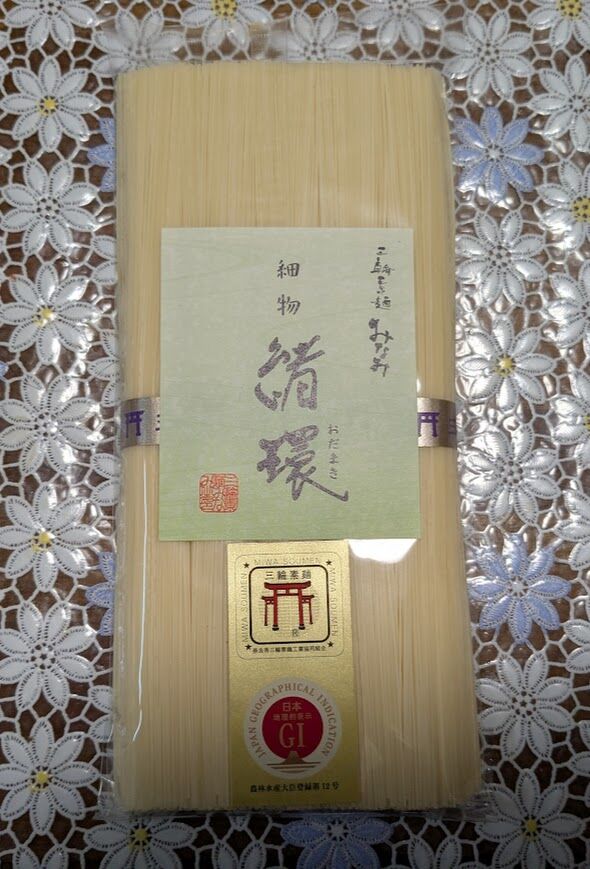 三輪素麺 みなみ
細物
緒環
おだまき
MIWA SOUMEN
MIWA SOUMEN
MIWA SOUMEN
三輪素麺
®
奈良県三輪素麺工業協同組合
JAPAN GEOGRAPHICAL INDICATION
日本
地理的表示
GI
農林水産大臣登録第12号